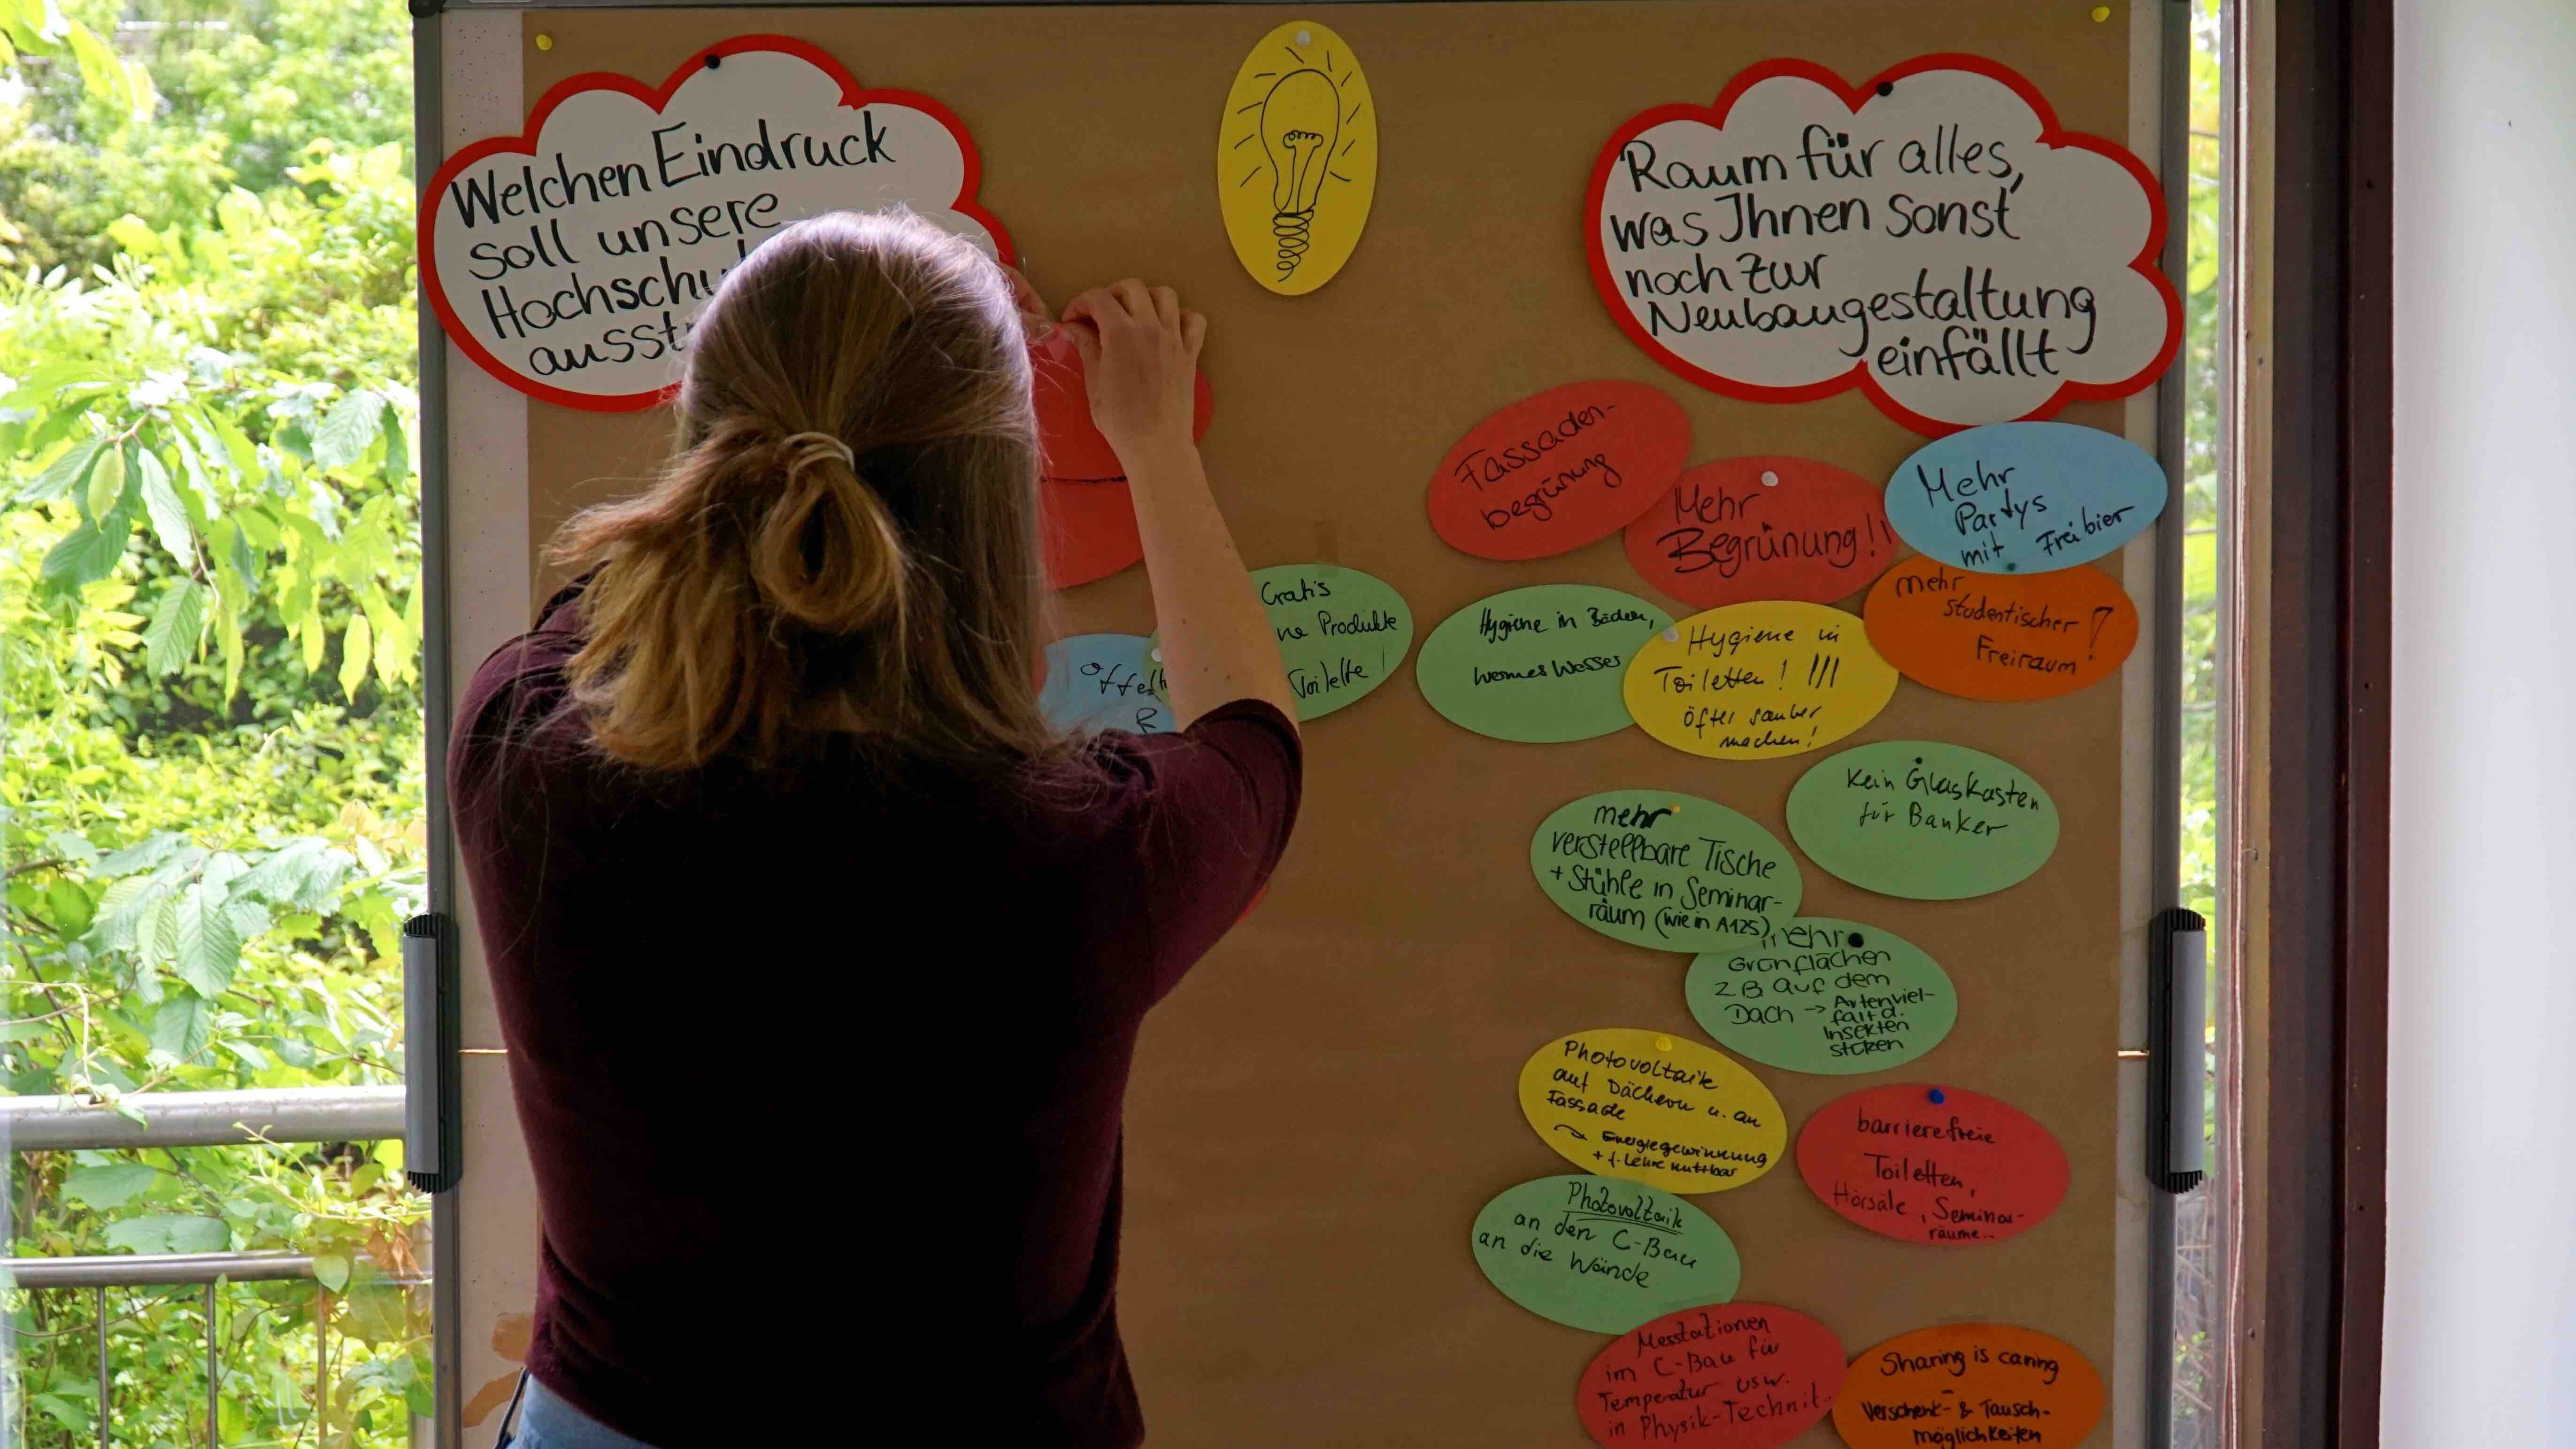 Welchen Eindruck
soll unsere
Raum für alles,
was Ihnen sonst
noch zur
Neubaugestaltung
einfällt
Fassaden-
begrünung
Mehr
Begrünung!!
Mehr
Partys
mit Freibier
mehr
studentischer
Freiraum!
Gratis
Produkte
Toilette!
Hygiene in Böden,
warmes Wasser
Hygiene in
Toiletten! !!!
öfter sauber
machen!
Kein Glaskasten
für Banker
mehr
verstellbare Tische
+ Stühle in Seminar-
räum (wie in A125)
mehr
Grünflächen
z B auf dem
Dach → Artenviel-
falt d.
Insekten
Photovoltaik
auf Dächern u. an
Fassade
Energiegewinnung
+ f. Lehre nuttbar
barrierefreie
Toiletten,
Hörsäle, Seminar-
räume..
Photovoltaik
an den C-Bau
an die Wände
Messtationen
im C-Bau für
Temperatur usw.
in Physik-Technik
Sharing is caring
-
Verschenk- & Tausch-
möglichkeiten